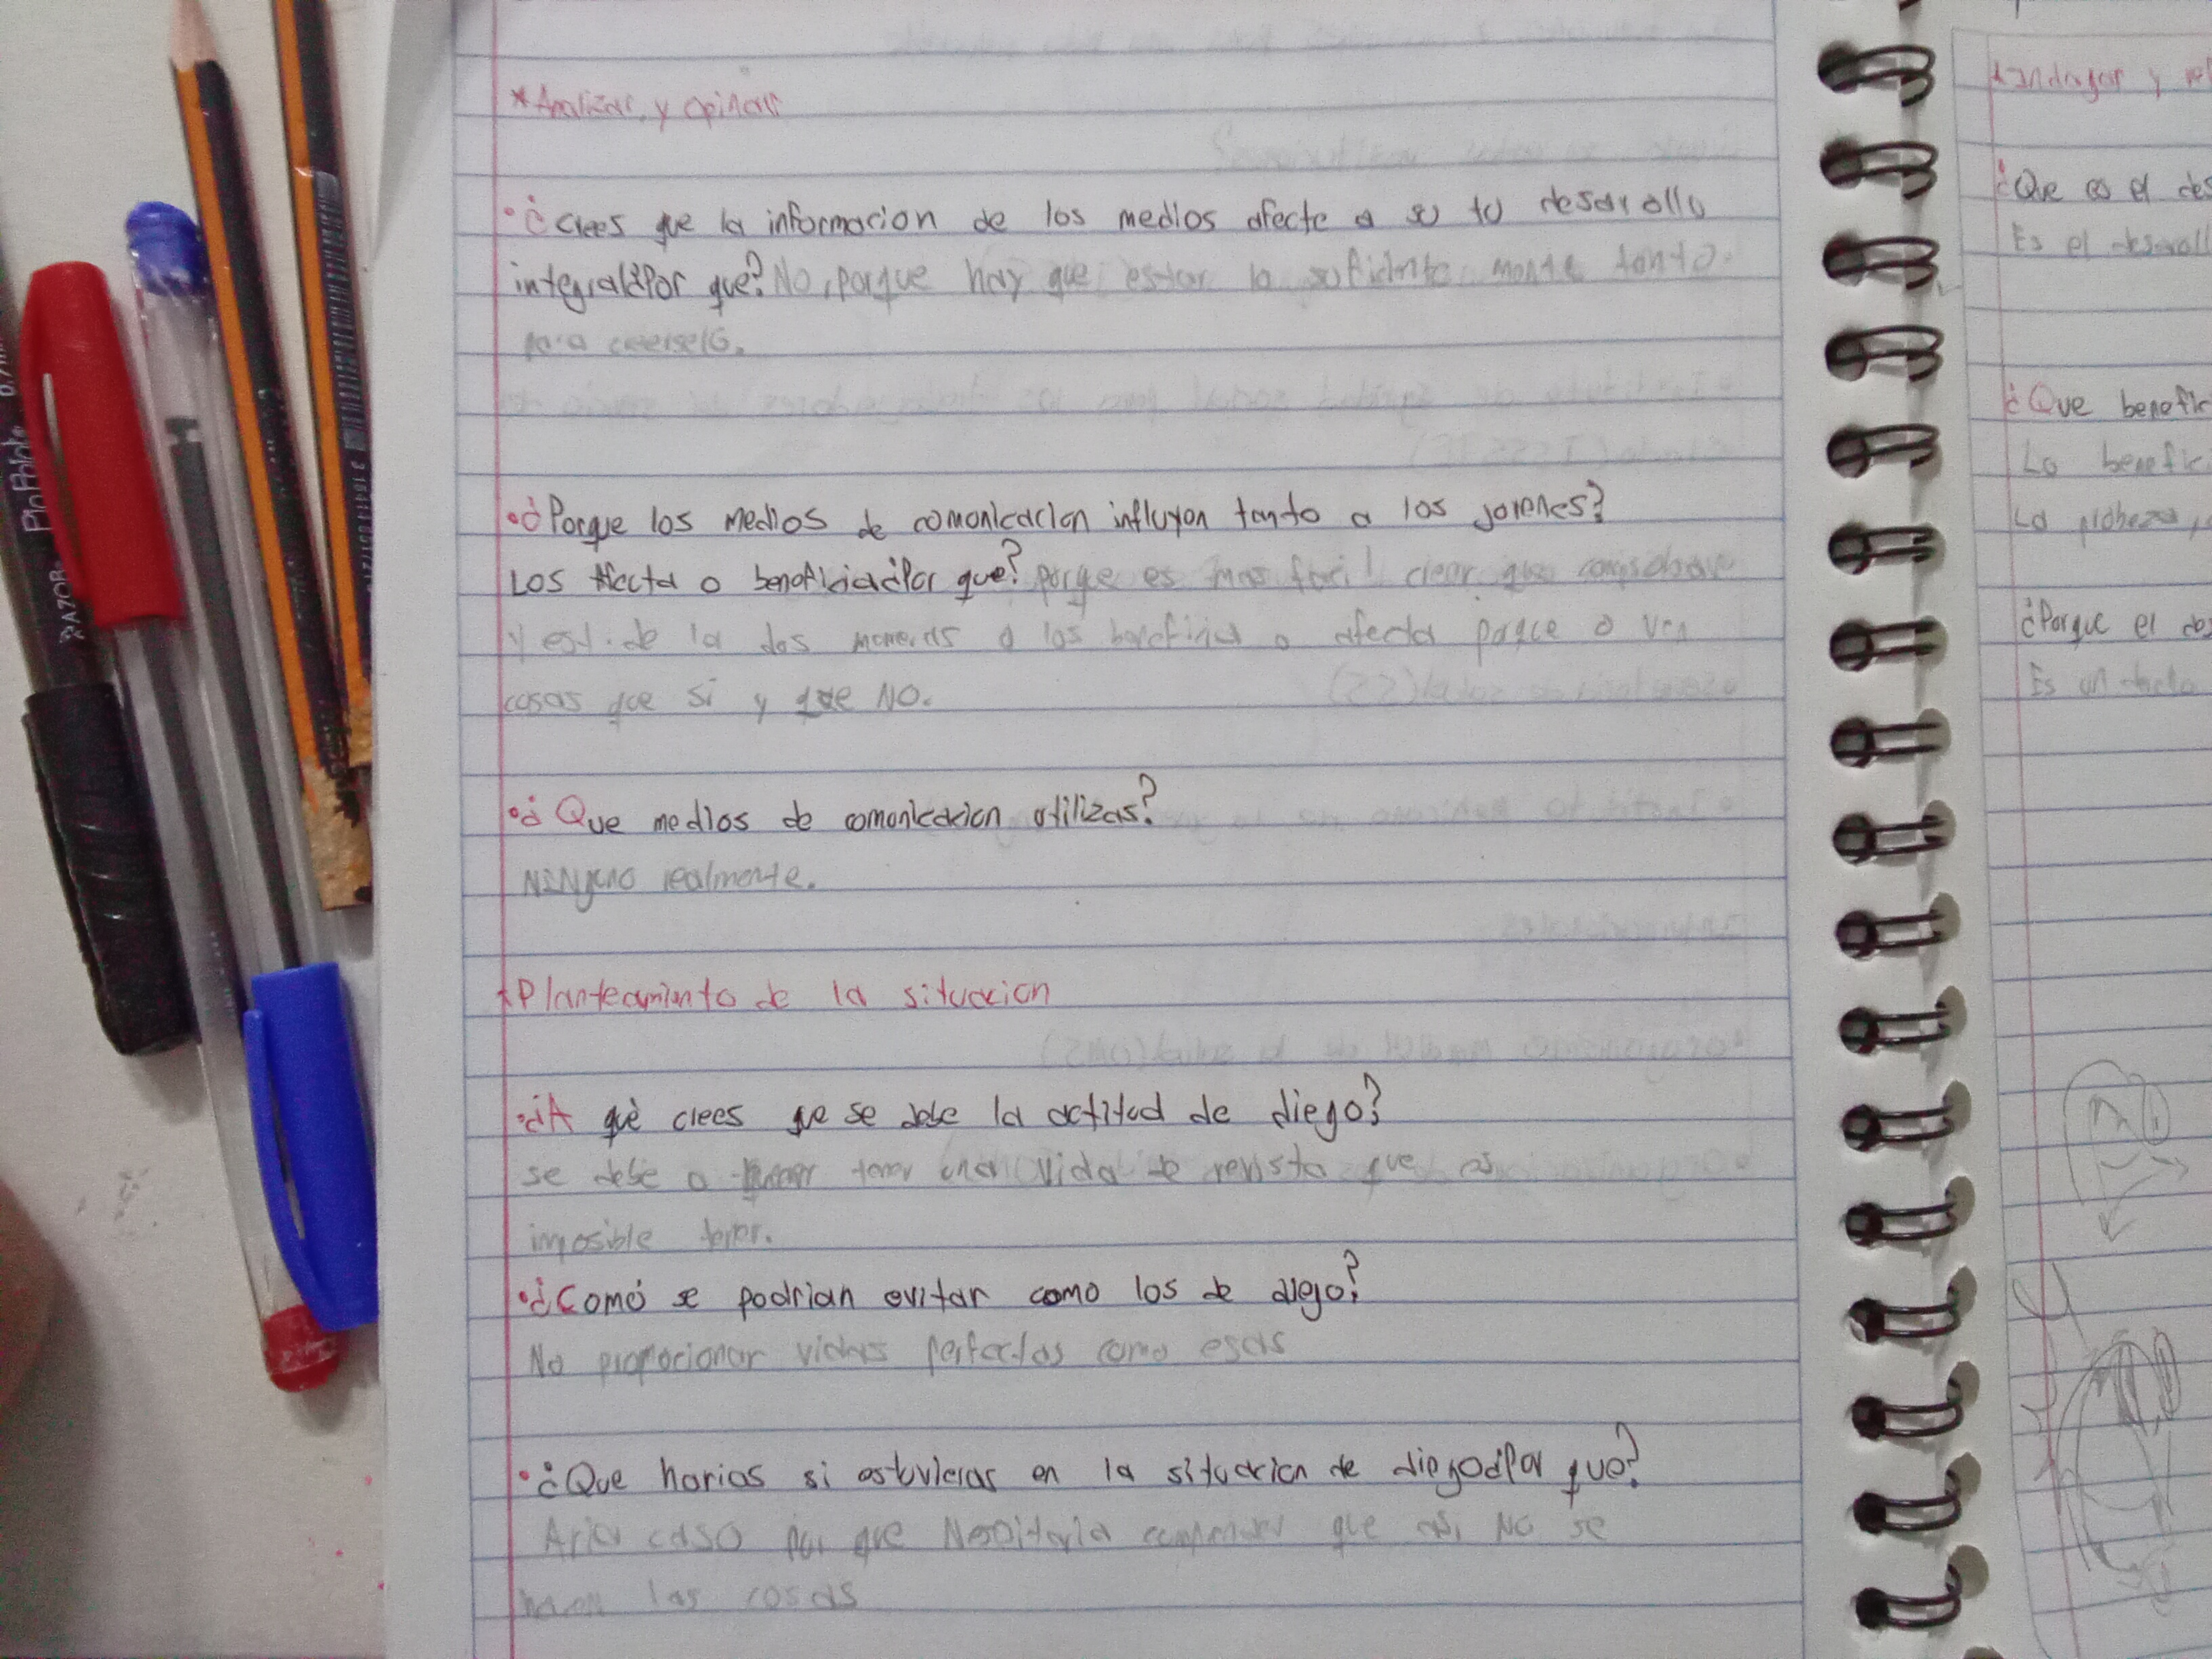 *Analizar y opinar
•¿clees que la informacion de los medios afecte a su tu desarollo
integral¿Por qué? No, porque hay que estar lo suficiente monte tonto
para creerselo.
•¿Porque los medios de comonicacion influyon tanto a los jovenes?
Los afecta o beneficia¿Por que? porqe es mas facil creer que comprobar
y est. de la dos maneras o los beneficia o afecta porqe o ven
cosas que si y que No.
•¿Que medios de comonicacion utilizas?
Ninguno realmente.
*Planteamiento de la situacion
•¿A qué clees qe se debe la actitud de diego?
se debe a tener una vida de revista que es
imposible tener.
•¿Comó se podrian evitar como los de diego?
No proporcionar vidas perfectas como esas
•¿Que harias si estuvieras en la situacion de diego¿Por que?
Aria caso por que Nesecitaria comprender que asi No se
hacen las cosas
*Indagar y
¿Que es el des
Es el desaroll
¿Que benefic
Lo benefic
La pobreza,
¿Porque el
Es un
PinPoint
RAZOR